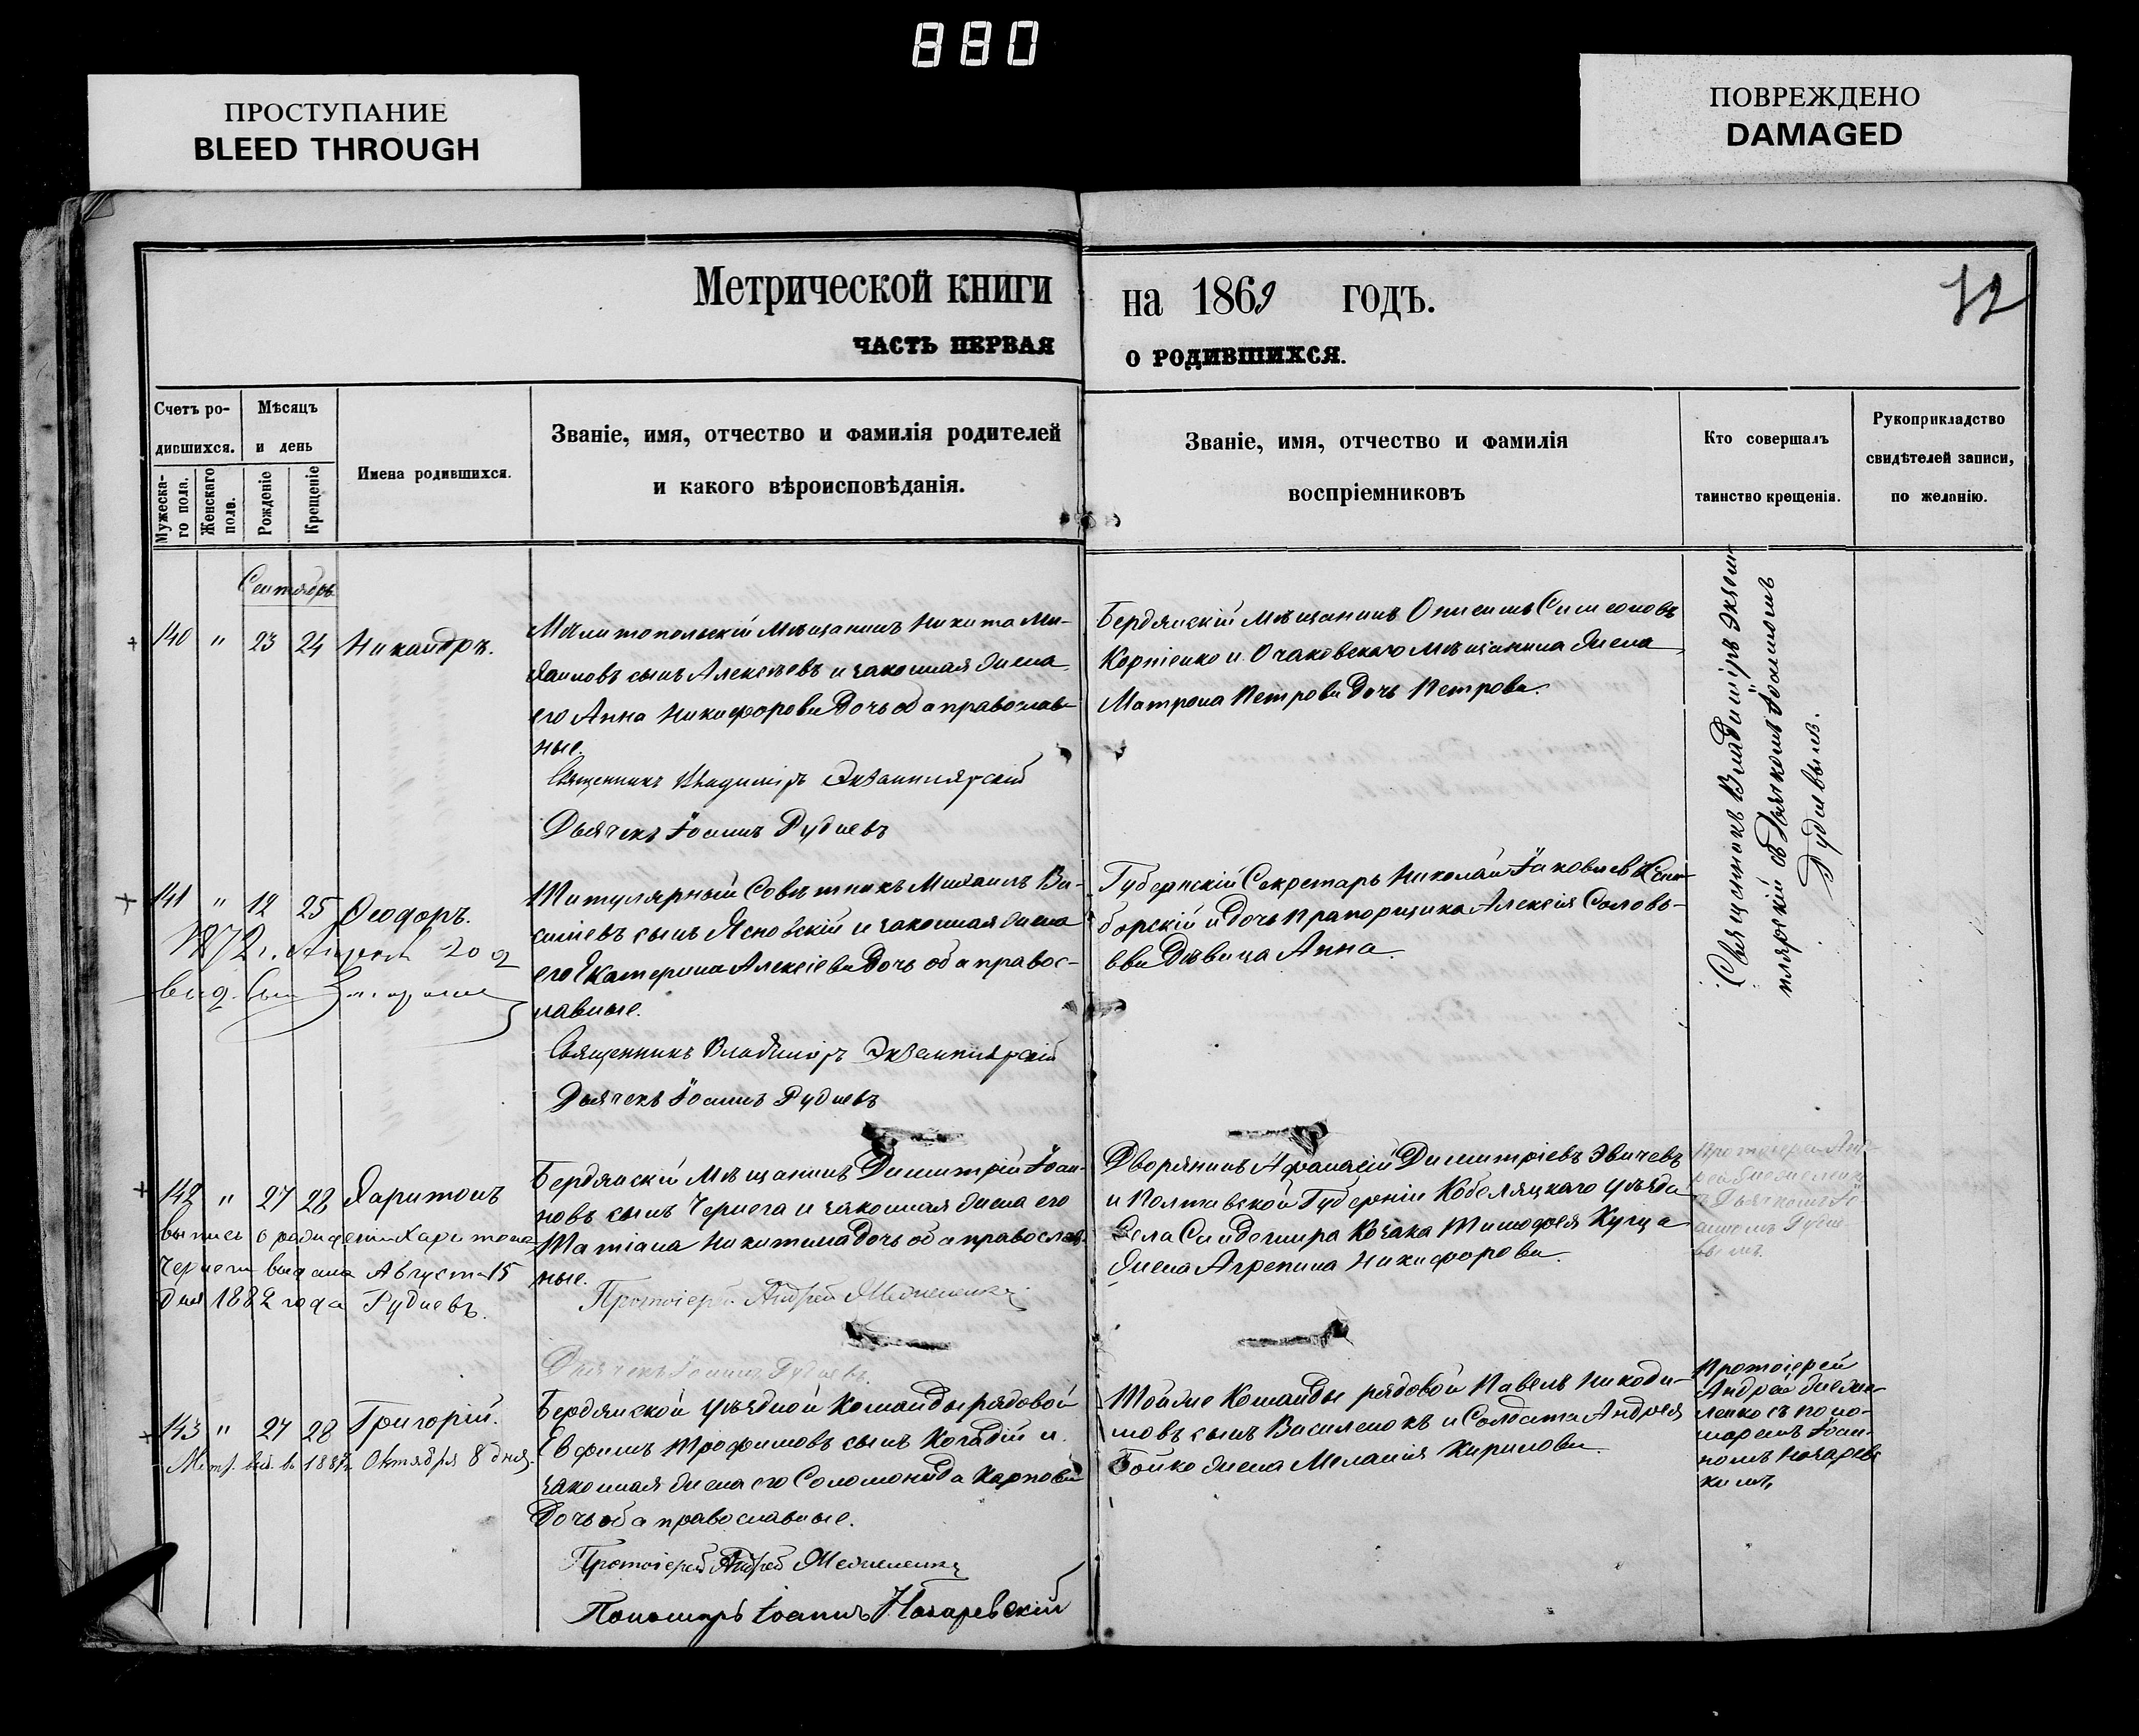 880
ПРОСТУПАНИЕ
BLEED THROUGH
ПОВРЕЖДЕНО
DAMAGED
Метрической книги
на 1869 годъ.
72
ЧАСТЬ ПЕРВАЯ
О РОДИВШИХСЯ.
Счетъ ро-
дившихся.
Мѣсяцъ
и день
Мужеска-
го пола.
Женскаго
пола.
Рожденіе
Крещеніе
Имена родившихся.
Званіе, имя, отчество и фамилія родителей
и какого вѣроисповѣданія.
Званіе, имя, отчество и фамилія
воспріемниковъ
Кто совершалъ
таинство крещенія.
Рукоприкладство
свидѣтелей записи,
по желанію.
Сентябрь
140 " 23 24 Никандръ.
Мелитопольскій Мѣщанинъ Никита Ми-
хаиловъ сынъ Алексѣевъ и законная жена
его Анна Никифорова дочь оба православ-
ные.
Священникъ Владиміръ Экземплярскій
Дьячекъ Іоаннъ Рудневъ
Бердянскій Мѣщанинъ Онисимъ Симеоновъ
Корніенко и Очаковскаго мѣщанина жена
Матрона Петрова дочь Петрова.
Священникъ Владиміръ Экзем-
плярскій съ Дьячкомъ Іоанномъ
Рудневымъ.
141 " 12 25 Ѳеодоръ.
1872 г. 20 д
Титулярный Совѣтникъ Михаилъ Ва-
силіевъ сынъ Ясновскій и законная жена
его Екатерина Алексіева дочь оба правос-
лавные.
Священникъ Владиміръ Экземплярскій
Дьячекъ Іоаннъ Рудневъ
Губернскій Секретарь Николай Іаковлевъ
борскій и дочь Прапорщика Алексія Соловь-
ева Дѣвица Анна.
142 " 27 28 Харитонъ
выпись о рожденіи Харитона
Чернеги выдана Августа 15
дня 1882 года Рудневъ.
Бердянскій Мѣщанинъ Димитрій Іоан-
новъ сынъ Чернега и законная жена его
Татіана Никитина дочь оба православ-
ные.
Протоіерей Андрей
Дьячекъ Іоаннъ Рудневъ.
Дворянинъ Афанасій Димитріевъ Эвичевъ
и Полтавской Губерніи Кобеляцкаго уѣзда
Села Сандомира Козака Тимофея Куща
жена Агрепина Никифорова.
Протоіерей Анд-
рей
Дьячкомъ Іо-
анномъ Рудне-
вымъ.
143 " 27 28 Григорій.
Метр. выд. Октября 8 дня.
Бердянской уѣздной команды рядовой
Евфимъ Трофимовъ сынъ Когадій и
законная жена его Соломонида Карпова
дочь оба православные.
Протоіерей Андрей
Пономарь Іоаннъ Назаревскій
Тойже Команды рядовой Павелъ Никоди-
мовъ сынъ Василенокъ и Солдата Андрея
Бойко жена Меланія Кирилова.
Протоіерей
Андрей
съ поно-
маремъ Іоан-
номъ Назаревс
кимъ